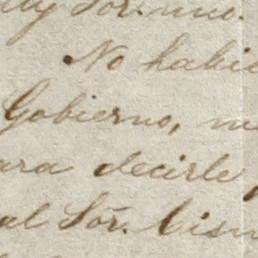 Sor. mio.
No habie
Gobierno, m
ara decirle
al Sõr. Cisn